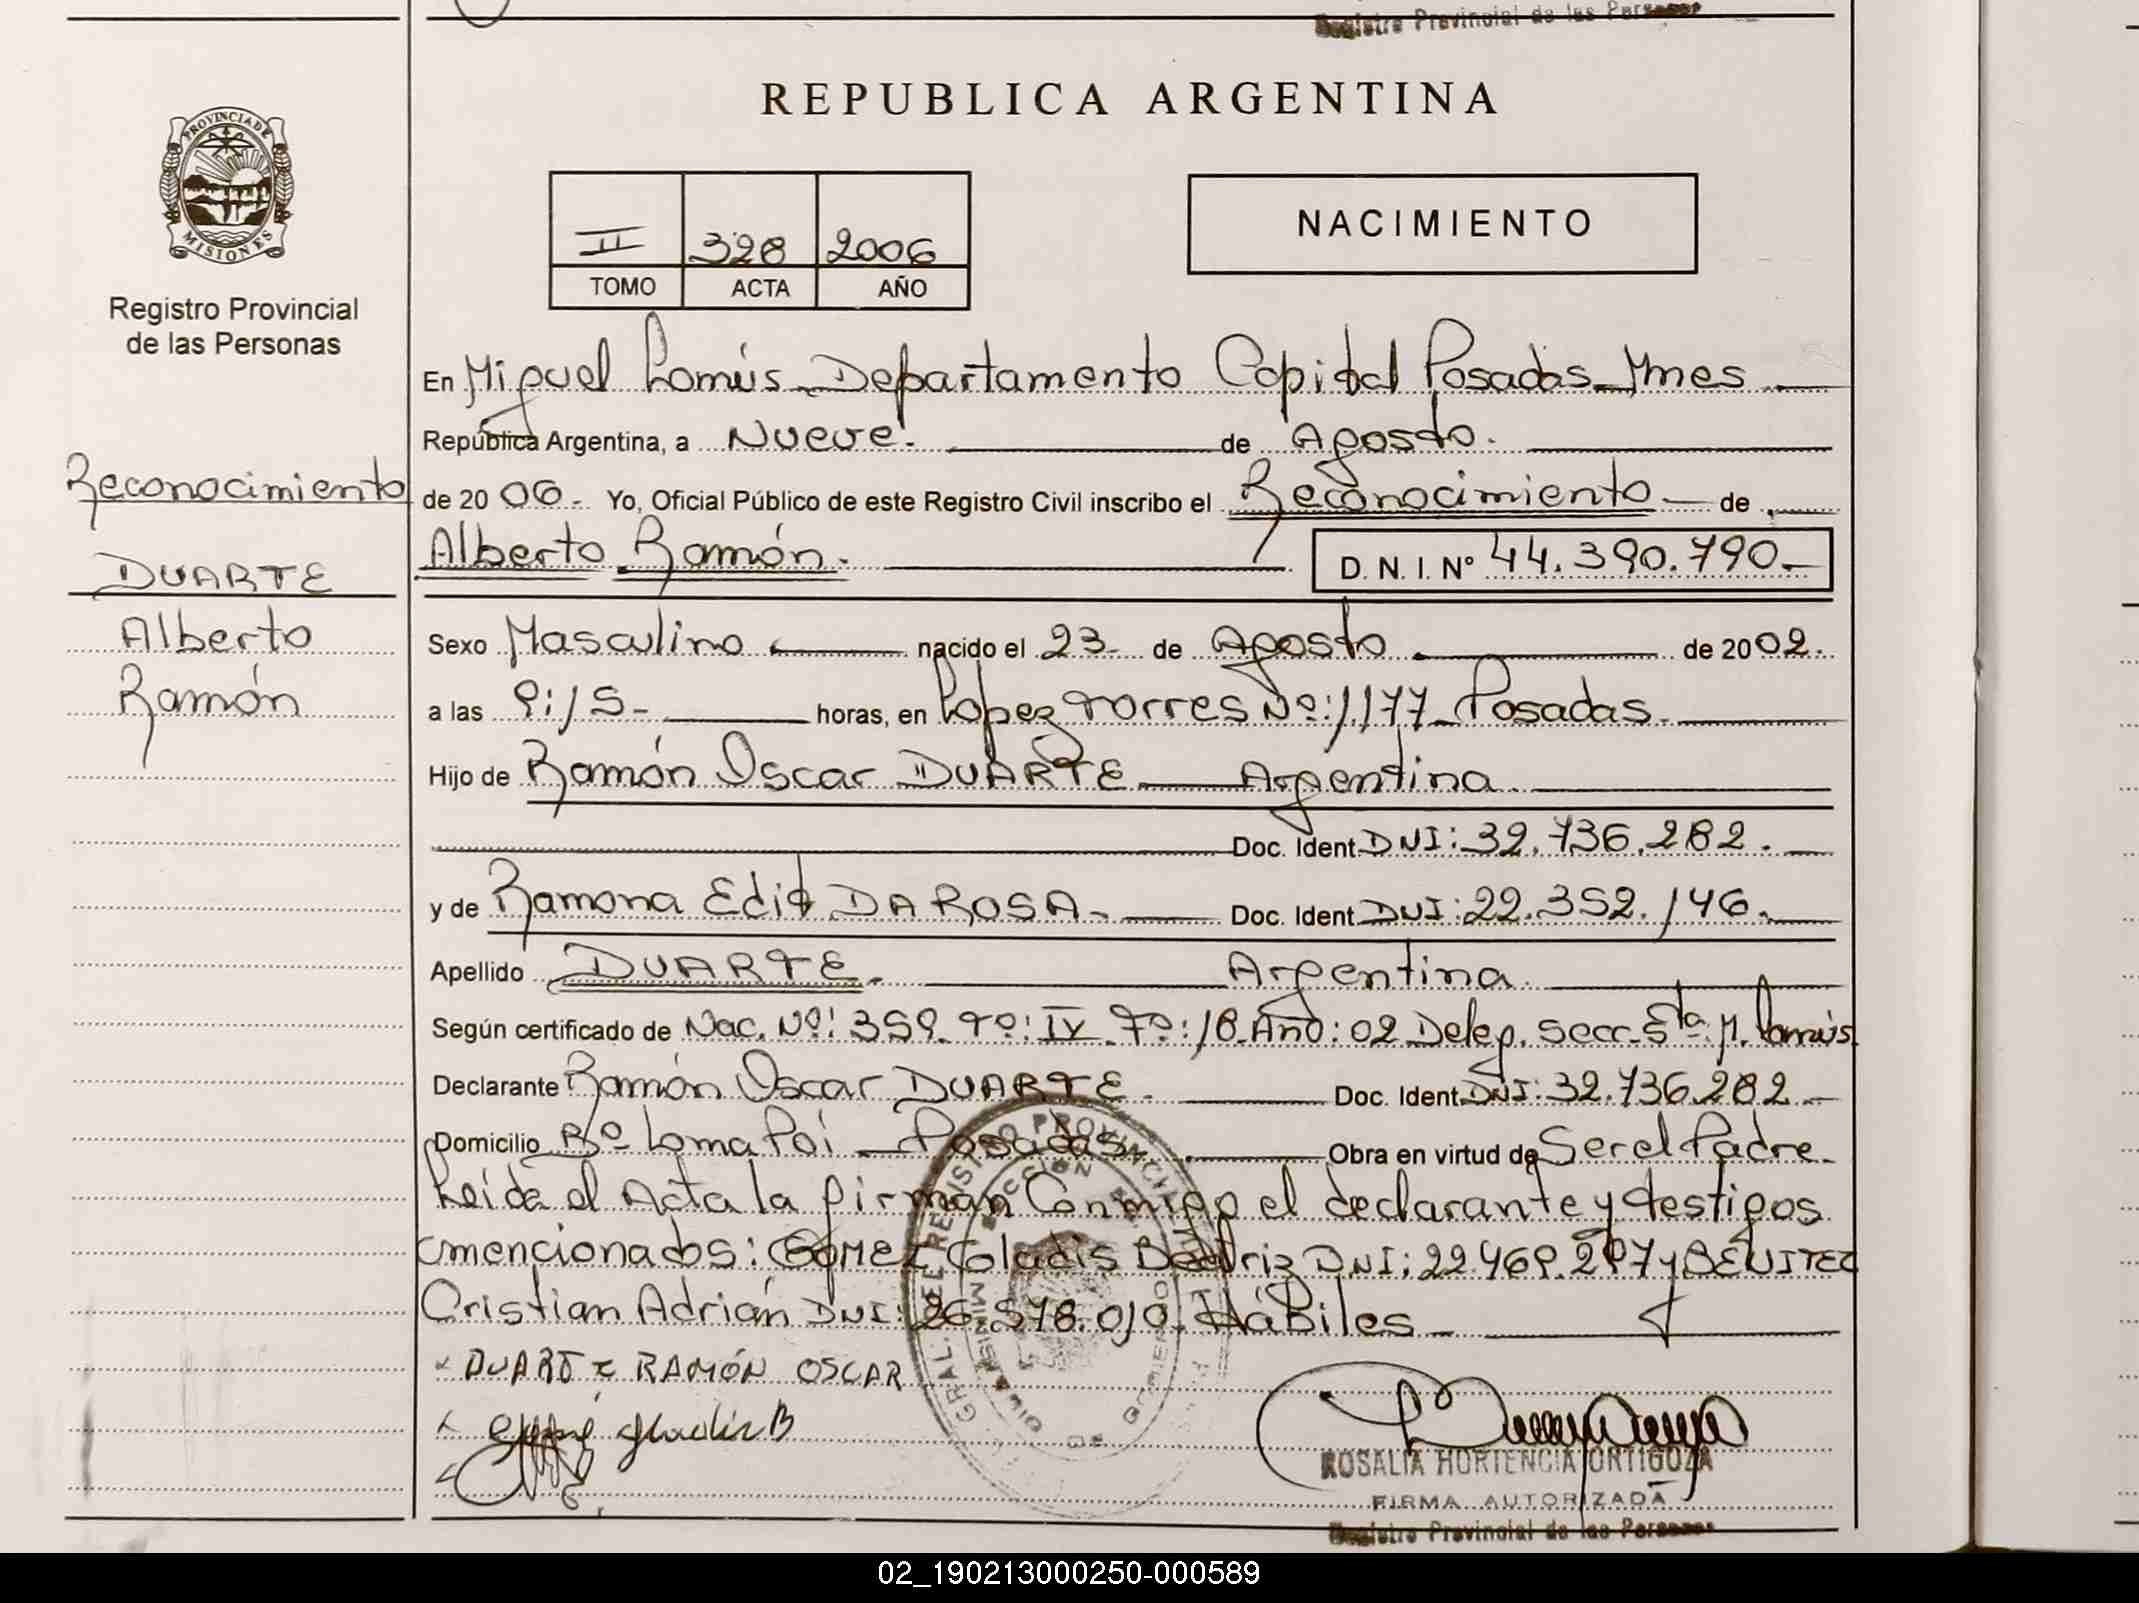 Registro Provincial de las Personas
REPUBLICA ARGENTINA
PROVINCIA DE
MISIONES
Registro Provincial
de las Personas
II 328 2006
TOMO ACTA AÑO
NACIMIENTO
En Miguel Lanús Departamento Capital Posadas Mnes
República Argentina, a Nueve. de Agosto.
Reconocimiento
de 20 06.- Yo, Oficial Público de este Registro Civil inscribo el Reconocimiento de
Alberto Ramón. D. N. I. Nº 44.390.790.-
DUARTE
Alberto
Ramón
Sexo Masculino nacido el 23 de Agosto de 2002.
a las 9:15- horas, en Lopez Torres Nº: 1177 Posadas.
Hijo de Ramón Oscar DUARTE Argentina.
Doc. Ident. DNI: 32.736.282.
y de Ramona Edit DA ROSA.- Doc. Ident. DNI: 22.352.146.
Apellido DUARTE. Argentina.
Según certificado de Nac. Nº: 359. Tº: IV Fº: 18. Año: 02 Deleg. Secc. 5ta. M. Lanús
Declarante Ramón Oscar DUARTE. Doc. Ident. DNI: 32.736.282.-
Domicilio Bº Loma Poí - Posadas. Obra en virtud de Ser el Padre.
Leída el Acta la firman Conmigo el declarante y testigos
mencionados: GOMEZ Gladis Beatriz DNI: 22.469.297 y BENITEZ
Cristian Adrián DNI: 26.578.010. Hábiles
DUARTE RAMÓN OSCAR
Gladis B
ROSALIA HORTENCIA ORTIGOZA
FIRMA AUTORIZADA
Registro Provincial de las Personas
GRAL. DE REGISTRO PROVINCIAL
02_190213000250-000589